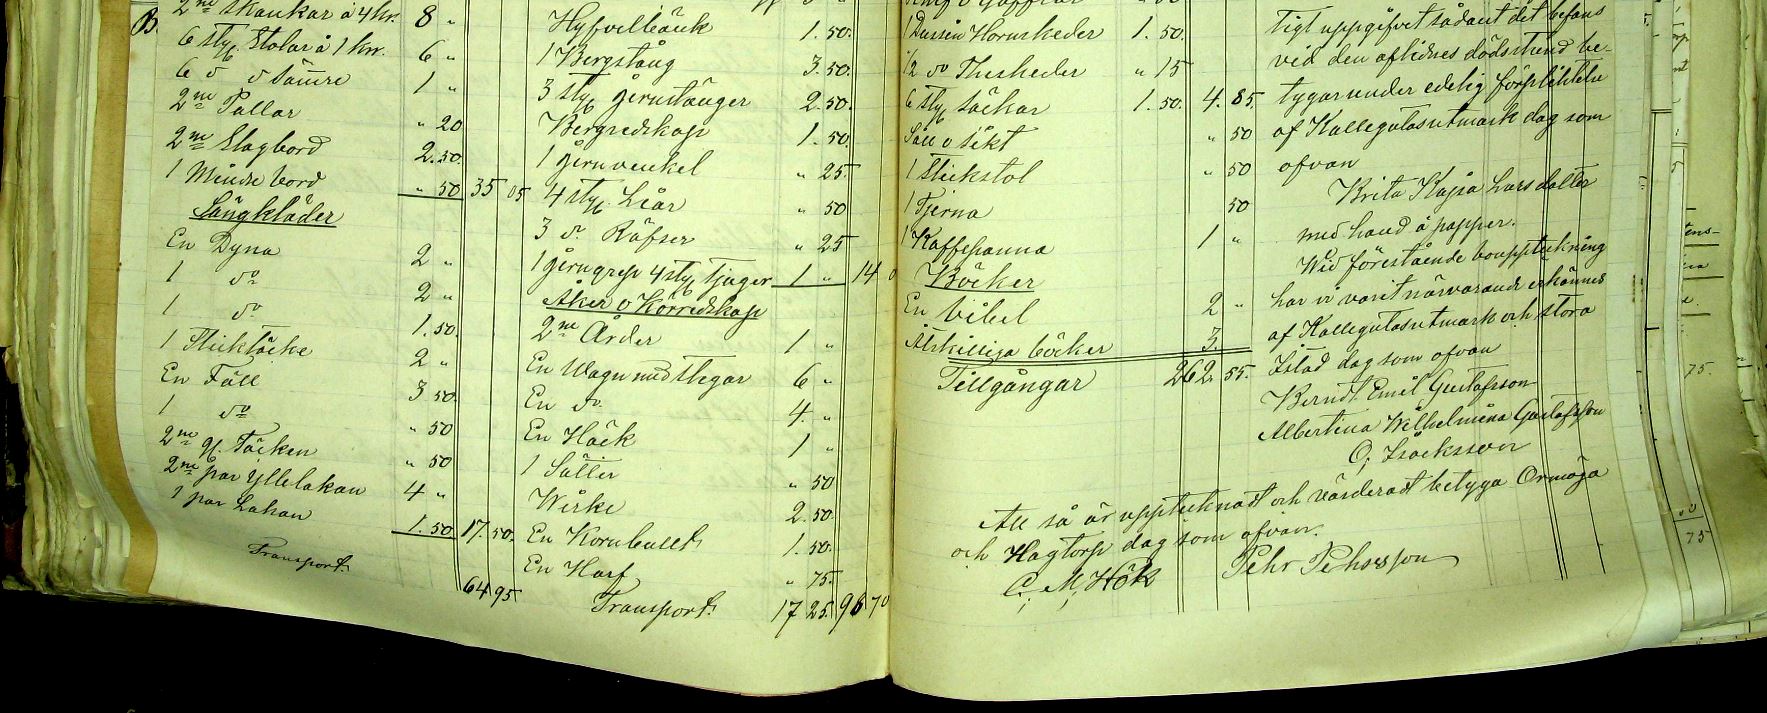 B. 2ne Skänkar à 4 kr. 8 "
6 styc Stolar à 1 kr. 6 "
6 d o sämre 1 "
2ne Pallar " 20
2ne Slagbord 2. 50.
1 Mindre bord " 50 35 05
Sängkläder
En Dyna 2 "
1 do 2 "
1 do 1. 50.
1 Sticktäcke 2 "
En Fäll 3 50.
1 do " 50
2ne gl. Täcken " 50
2ne par Yllelakan 4 "
1 par Lakan 1. 50. 17. 50.
Transport. 64 95
Hyfvelbänk 1. 50.
1 Bergstång 3. 50.
3 styc Jernstänger 2. 50.
Bergredskap 1. 50.
1 Jernvinkel " 25.
4 styc Liar " 50
3 do Räfser " 25
1 Jerngrep 4 styc Tjugor 1 " 14 0
Åker o Körredskap
2ne Årder 1 "
En Wagn med Stegar 6 "
En do 4. "
En Häck 1 "
1 " 50
Wirke 2. 50.
En 1. 50.
En Harf " 75.
Transport. 17 25. 96 70
1 Dussin Hornskeder 1. 50.
1/2 do Theskeder " 15
6 styc säckar 1. 50. 4. 85.
Såll o sikt " 50
1 Stickstol " 50
1 Tjerna 50
1 Kaffepanna 1 "
Böcker
En bibel 2 "
Åtskilliga böcker 3.
Tillgångar 262. 55.
tigt uppgifvet sådant det befans
vid den aflidnes dödsstund be-
tygar under edelig förpliktelse
af Kallegatasutmark dag som
ofvan
Brita Kajsa Larsdotter
med hand å papper.
Wid förestående bouppteckning
har vi varit närvarande erkännes
af Kallegutasutmark och stora
Istad dag som ofvan
Berndt Emil Gustafsson
Albertina Wilhelmina Gustafsson
O, Isacksson
Att så är upptecknadt och värderadt betyga Ormöga
och Hagtorp dag som ofvan.
C, M, Hök Pehr Pehrsson
75.
75